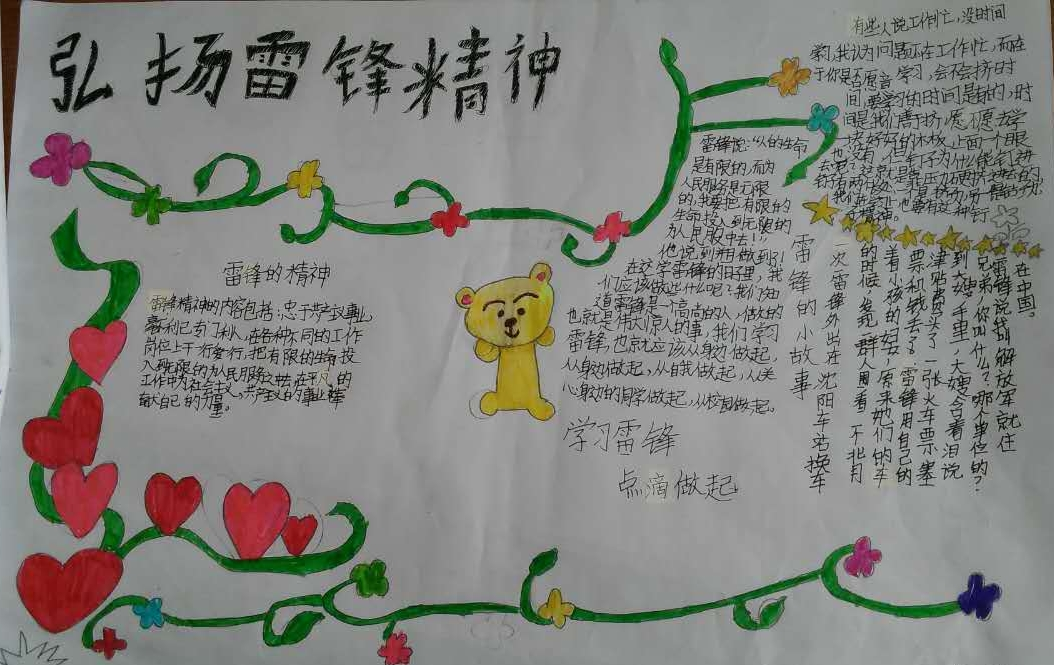 弘扬雷锋精神
雷锋的精神
雷锋精神的内容包括：忠于共产主义事业，
毫不利己专门利人，在各种不同的工作
岗位上干一行爱一行，把有限的生命投
入到无限的为人民服务之中去，在平凡的
工作中为社会主义、共产主义的事业
献自己的力量。
雷锋说：“人的生命
是有限的，而为
人民服务是无限
的，我要把有限的
生命投入到无限的
为人民服中去！”，
他说到并用做到了
在这学雷锋的日里，我
们应该做些什么呢？我们知
道雷锋是一个高尚的人，做的
也就是伟大惊人的事，我们学习
雷锋，也就应该从身边做起，
从身边做起，从自我做起，从关
心身边的同学做起，从校园做起。
学习雷锋
点滴做起
有些人说工作忙，没时间
学习，我认为问题不在工作忙，而在
于你是否愿意学习，会不会挤时
间，要学习的时间是有的，时
间是我们善于挤，愿不愿去学
一块好好的木板，上面一个眼
也没有，但钉子为什么能钉进
去呢？这就是靠压力硬挤进去的，
我们在学习上也要有这种钉
子精神。
雷锋的小故事
一次雷锋外出在沈阳车站换车
的时候，发现一群人围看一个背
着小孩的妇女，原来她们的车
票和钱去了，雷锋用自己的
津贴费买了一张火车票塞
到大嫂手里，大嫂含着泪说
兄弟，你叫什么？哪个单位的？
雷锋说我叫解放军就住
在中国。